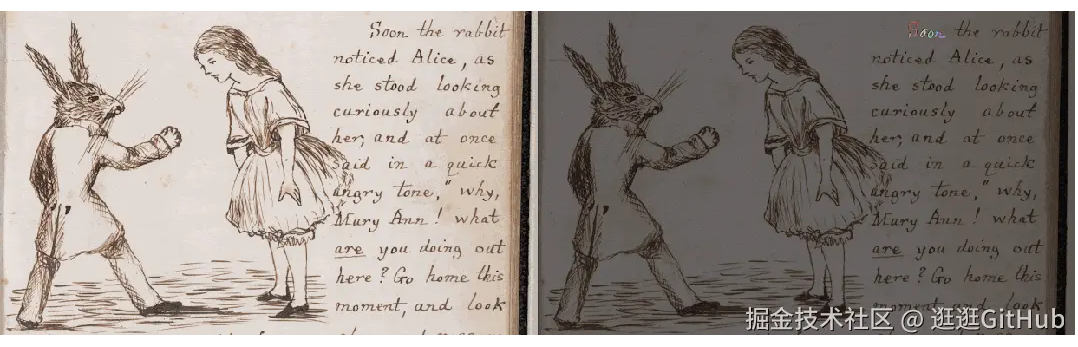 Soon the rabbit
noticed Alice, as
she stood looking
curiously about
her, and at once
said in a quick
angry tone, "why,
Mary Ann! what
are you doing out
here? Go home this
moment, and look
Soon the rabbit
noticed Alice, as
she stood looking
curiously about
her, and at once
said in a quick
angry tone, "why,
Mary Ann! what
are you doing out
here? Go home this
moment, and look
掘金技术社区 @ 逛逛GitHub